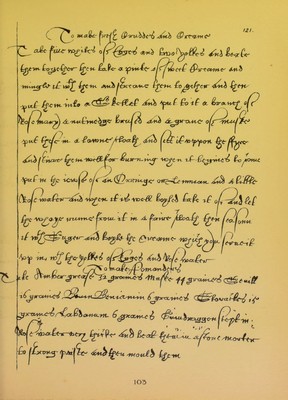 121.
To make fresh Cruddes and Creame
Take five whites of Egges and two yolkes and beate
them together then take a pinte of sweet Creame and
mingle it wth them and streane them together and then
put them into a Skellet and put to it a branch of
Rosemary a nutmegge brused and a grane of muske
put these in a lawne cloath and sett it uppon the fyre
and sturre them well for burning when it begines to
put in the iewse of an Orringe or Lemman and a little
Rose water and when it is well boyled take it of and let
the whaye runne from it in a faire cloath then season
it wth Suger and boyle the Creame which you serve it
up in wth the yolkes of Egges and Rose water
to make Pomanders
Take Amber greace 12 graines Muske 44 graines Sevill
16 graines Beniamin 6 graines Storackes 15
graines Labdanum 6 graines Gumdraggon steept in
Rose water very thicke and beat them in a stone morter
to strong paiste and then mould them
103